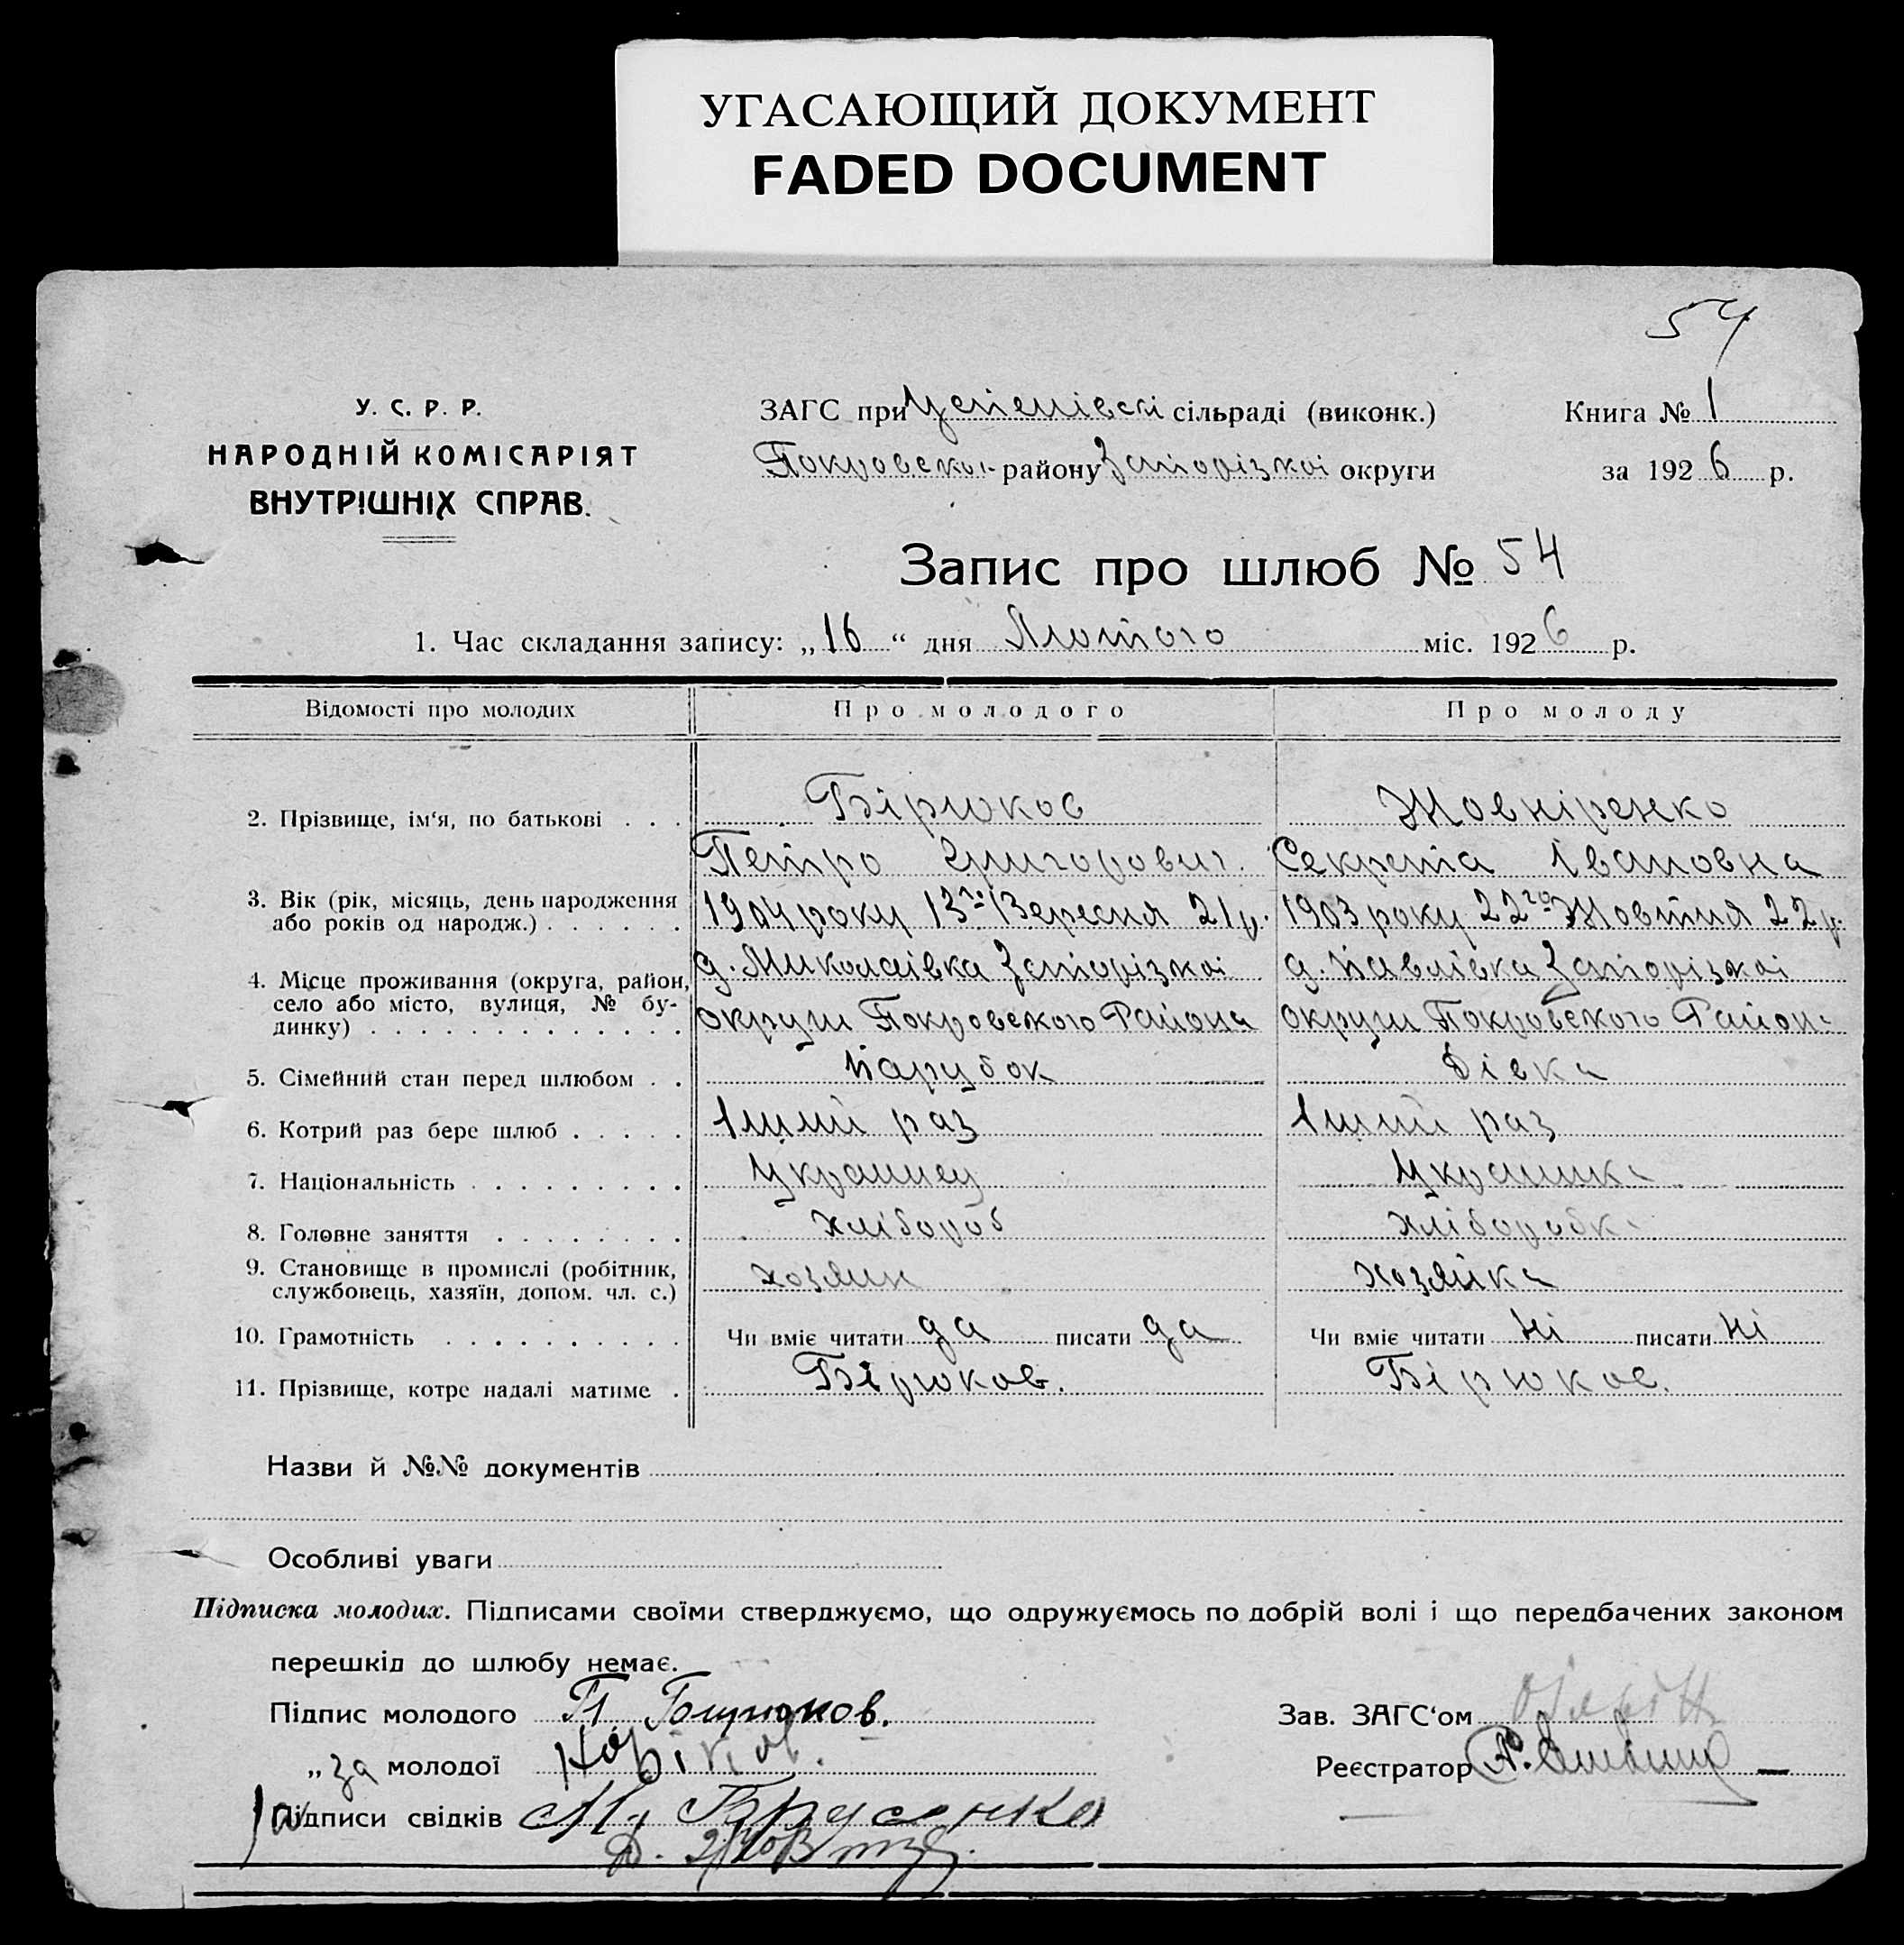 УГАСАЮЩИЙ ДОКУМЕНТ
FADED DOCUMENT
54
У. С. Р. Р.
НАРОДНІЙ КОМІСАРІЯТ
ВНУТРІШНІХ СПРАВ.
ЗАГС при Успенівскі сільраді (виконк.)
Покровскої району Запорізкої округи
Книга № 1
за 1926 р.
Запис про шлюб № 54
1. Час складання запису: „16“ дня Лютого міс. 1926 р.
Відомості про молодих
Про молодого
Про молоду
2. Прізвище, ім'я, по батькові . . .
Бірюков
Петро Григорович.
Жовніренко
Секрета Івановна
3. Вік (рік, місяць, день народження
або років од народж.) . . . . . .
1904 року 13го Вересня 21 р.
1903 року 22го Жовтня 22 р.
4. Місце проживання (округа, район,
село або місто, вулиця, № бу-
динку) . . . . . . . . . . . . .
д. Миколаівка Запорізкоі
округи Покровского Района
д. Павлівка Запорізкоі
округи Покровского Район
5. Сімейний стан перед шлюбом . .
Парубок
Дівка
6. Котрий раз бере шлюб . . . . .
1ший раз
1ший раз
7. Національність . . . . . . . . .
Украинец
Украинка
8. Головне заняття . . . . . . . .
хлібороб
хліборобка
9. Становище в промислі (робітник,
службовець, хазяїн, допом. чл. с.)
хозяин
хозяйка
10. Грамотність . . . . . . . . . .
Чи вміє читати да писати да
Чи вміє читати ні писати ні
11. Прізвище, котре надалі матиме .
Бірюков.
Бірюков.
Назви й №№ документів
Особливі уваги
Підписка молодих. Підписами своїми стверджуємо, що одружуємось по добрій волі і що передбачених законом
перешкід до шлюбу немає.
Підпис молодого П. Бирюков.
„ за молодої
Підписи свідків
Зав. ЗАГС'ом
Реєстратор